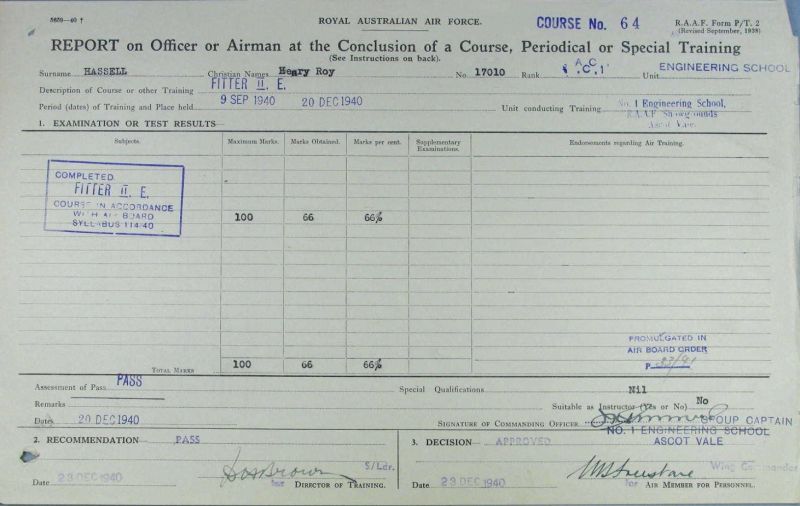 5609—40 †
ROYAL AUSTRALIAN AIR FORCE.
COURSE No. 64
R.A.A.F. Form P/T. 2
(Revised September, 1938)
REPORT on Officer or Airman at the Conclusion of a Course, Periodical or Special Training
(See Instructions on back).
Surname HASSELL Christian Names Henry Roy No. 17010 Rank A.C.1 Unit ENGINEERING SCHOOL
Description of Course or other Training FITTER II. E.
Period (dates) of Training and Place held 9 SEP 1940 20 DEC 1940 Unit conducting Training No. 1 Engineering School,
R.A.A.F. Showgrounds
Ascot Vale.
1. EXAMINATION OR TEST RESULTS—
Subjects. Maximum Marks. Marks Obtained. Marks per cent. Supplementary Examinations. Endorsements regarding Air Training.
COMPLETED
FITTER II. E.
COURSE IN ACCORDANCE
WITH AIR BOARD
SYLLABUS 114/40
100 66 66%
PROMULGATED IN
AIR BOARD ORDER
P
TOTAL MARKS 100 66 66%
Assessment of Pass PASS Special Qualifications Nil
Remarks Suitable as Instructor (Yes or No) No
Date 20 DEC 1940 SIGNATURE OF COMMANDING OFFICER GROUP CAPTAIN
NO. 1 ENGINEERING SCHOOL
ASCOT VALE
2. RECOMMENDATION— PASS
S/Ldr.
Date 23 DEC 1940 for DIRECTOR OF TRAINING.
3. DECISION— APPROVED
Wing Commander
Date 23 DEC 1940 for AIR MEMBER FOR PERSONNEL.